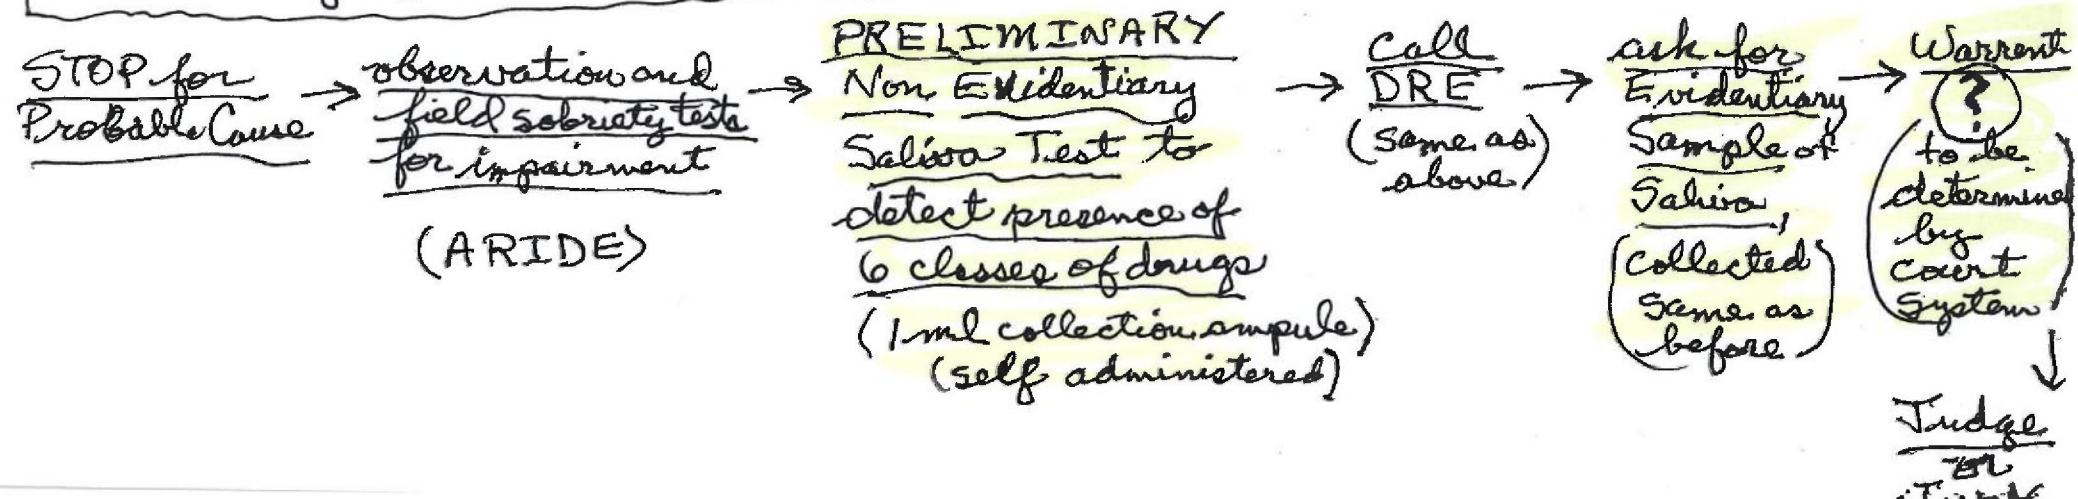 STOP for
Probable Cause
→
observation and
field sobriety tests
for impairment
(ARIDE)
→
PRELIMINARY
Non Evidentiary
Saliva Test to
detect presence of
6 classes of drugs
(1 ml collection ampule)
(self administered)
→
Call
DRE
(same as
above)
→
ask for
Evidentiary
Sample of
Saliva,
(collected
same as
before)
→
Warrent
?
(to be
determined
by
court
system)
↓
Judge
or